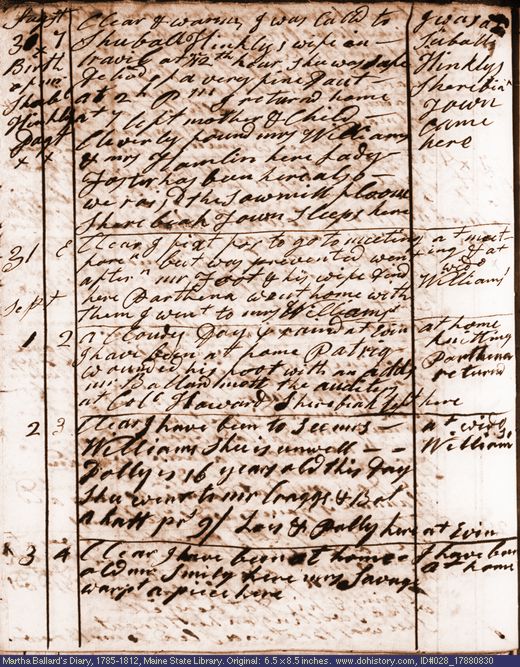 30 7
Birth
Clear & warm. I was Calld to
Shuball Hinklys wife in
travil at 12th hour she was safe
Delivd of a very fine Daut
at 2h Pm I returnd home
at 7 left mother & Child
Cleverly found mrs Williams
& mrs Hamlin here Lady
Foster has been here also
we raisd the Sawmill
Sherebiah Town Sleeps here
I was at
Suballs
Hinklys
Sherebiah
Town
Came
here
31 E
Clear I fixt to go to meeting
but was prevented went
aftern mr Foot & his wife
here Parthena went home with
them I went to mrs Williams
at meeting
Williams
Sept
1 2
a Cloudy Day & rain at Evin
I have been at home
wounded his foot with an adds
mr Ballard mett the auditors
at Colc Howards Sherebiah left here
at home
knitting
Parthena
returnd
2 3
Clear I have been to See mrs
Williams She is unwell
Dolly is 16 years old this Day
She went to mr Craggs & Bot
a half pr of Los & Polly here at Evin
at wido
Williams
3 4
Clear I have been at home
old mr Smily here mrs Savage
warpt a piece here
I have been
at home
Martha Ballard's Diary, 1785-1812, Maine State Library. Original: 6.5 x 8.5 inches. www.dohistory.com, ID#028_17880830